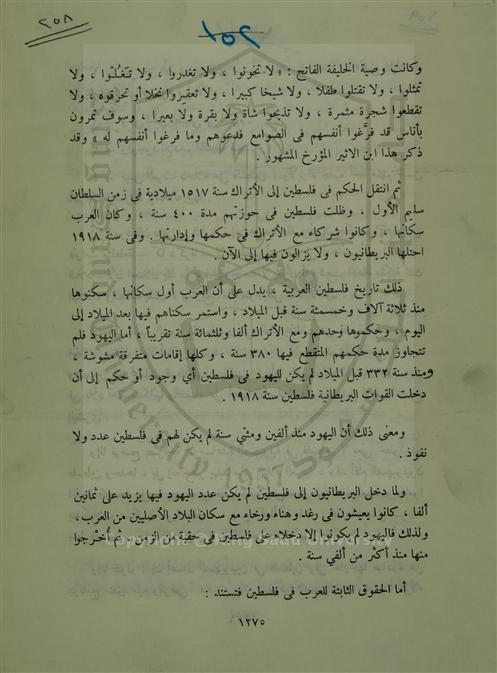 ٢٥٨
٢٥٦
وكانت وصية الخليفة الفاتح : « لا تخونوا ، ولا تغدروا ، ولا تَغُلّوا ، ولا
تمثلوا ، ولا تقتلوا طفلا ، ولا شيخا كبيرا ، ولا تعقروا نخلا أو تحرقوه ، ولا
تقطعوا شجرة مثمرة ، ولا تذبحوا شاة ولا بقرة ولا بعيرا ، وسوف تمرون
بأناس قد فرَّغوا أنفسهم فى الصوامع فدعوهم وما فرغوا أنفسهم له » وقد
ذكر هذا ابن الاثير المؤرخ المشهور .
ثم انتقل الحكم فى فلسطين إلى الأتراك سنة ١٥١٧ ميلادية فى زمن السلطان
سليم الأول ، وظلت فلسطين فى حوزتهم مدة ٤٠٠ سنة ، وكان العرب
سكانها ، وكانوا شركاء مع الأتراك فى حكمها وإدارتها . وفى سنة ١٩١٨
احتلها البريطانيون ، ولا يزالون فيها إلى الآن .
ذلك تاريخ فلسطين العربية ، يدل على أن العرب أول سكانها ، سكنوها
منذ ثلاثة آلاف وخمسمئة سنة قبل الميلاد ، واستمر سكناهم فيها بعد الميلاد إلى
اليوم ، وحكموها وحدهم ومع الأتراك ألفا وثلثمائة سنة تقريباً ، أما اليهود فلم
تتجاوز مدة حكمهم المتقطع فيها ٣٨٠ سنة ، وكلها إقامات متفرقة مشوشة ،
ومنذ سنة ٣٣٢ قبل الميلاد لم يكن لليهود فى فلسطين أي وجود أو حكم إلى أن
دخلت القوات البريطانية فلسطين سنة ١٩١٨ .
ومعنى ذلك أن اليهود منذ ألفين ومئتي سنة لم يكن لهم فى فلسطين عدد ولا
نفوذ .
ولما دخل البريطانيون إلى فلسطين لم يكن عدد اليهود فيها يزيد على ثمانين
ألفا ، كانوا يعيشون فى رغد وهناء ورخاء مع سكان البلاد الأصليين من العرب ،
ولذلك فاليهود لم يكونوا إلا دخلاء على فلسطين فى حقبة من الزمن ، ثم أُخرجوا
منها منذ أكثر من ألفي سنة .
أما الحقوق الثابتة للعرب فى فلسطين فتستند :
١٢٧٥